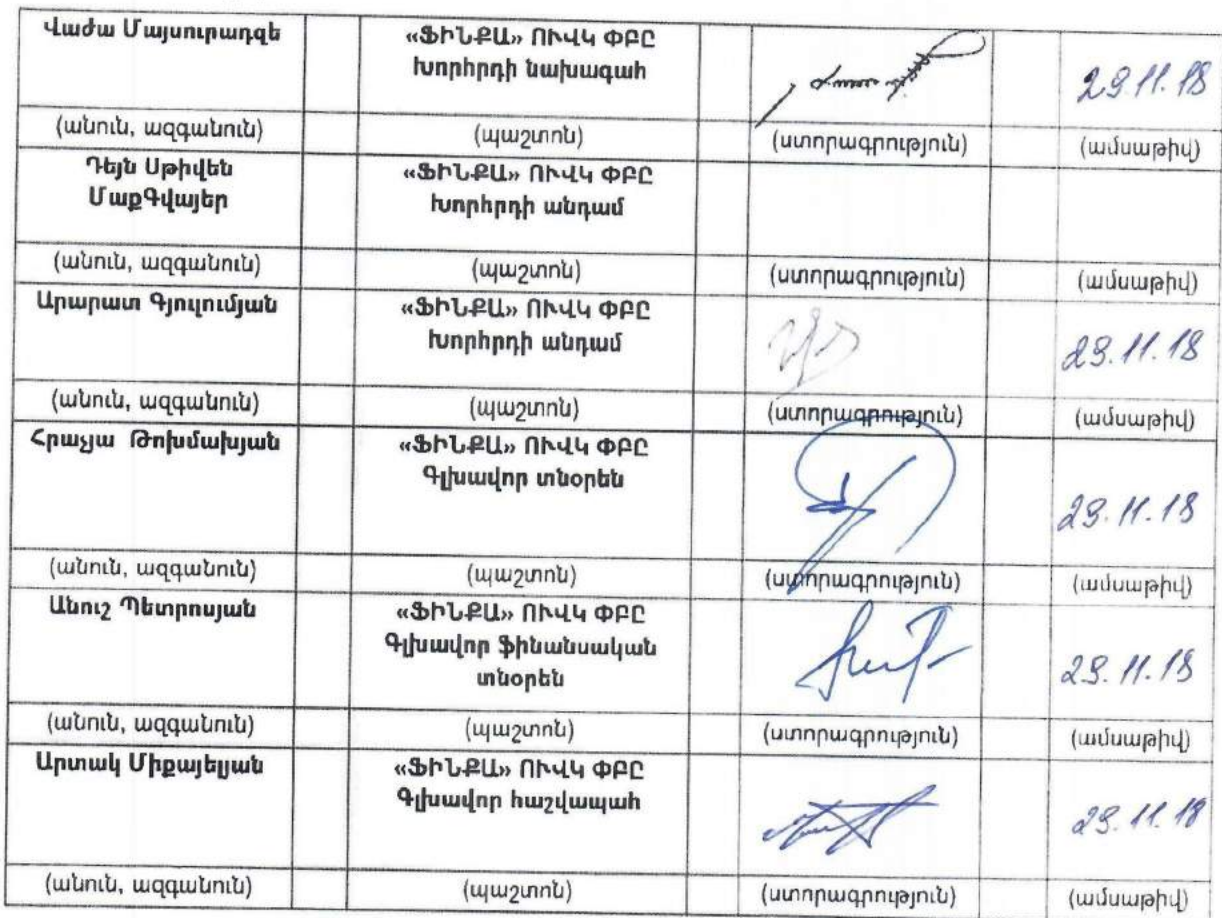 Վաժա Մայսուրաձզե
«ՖԻՆՔԱ» ՈՒՎԿ ՓԲԸ
Խորհրդի նախագահ
29.11.18
(անուն, ազգանուն)
(պաշտոն)
(ստորագրություն)
(ամսաթիվ)
Դեյն Սթիվեն
ՄաքԳվայեր
«ՖԻՆՔԱ» ՈՒՎԿ ՓԲԸ
Խորհրդի անդամ
(անուն, ազգանուն)
(պաշտոն)
(ստորագրություն)
(ամսաթիվ)
Արարատ Գյուլումյան
«ՖԻՆՔԱ» ՈՒՎԿ ՓԲԸ
Խորհրդի անդամ
29.11.18
(անուն, ազգանուն)
(պաշտոն)
(ստորագրություն)
(ամսաթիվ)
Հրաչյա Թոխմախյան
«ՖԻՆՔԱ» ՈՒՎԿ ՓԲԸ
Գլխավոր տնօրեն
29.11.18
(անուն, ազգանուն)
(պաշտոն)
(ստորագրություն)
(ամսաթիվ)
Անուշ Պետրոսյան
«ՖԻՆՔԱ» ՈՒՎԿ ՓԲԸ
Գլխավոր ֆինանսական
տնօրեն
29.11.18
(անուն, ազգանուն)
(պաշտոն)
(ստորագրություն)
(ամսաթիվ)
Արտակ Միքայելյան
«ՖԻՆՔԱ» ՈՒՎԿ ՓԲԸ
Գլխավոր հաշվապահ
29.11.18
(անուն, ազգանուն)
(պաշտոն)
(ստորագրություն)
(ամսաթիվ)